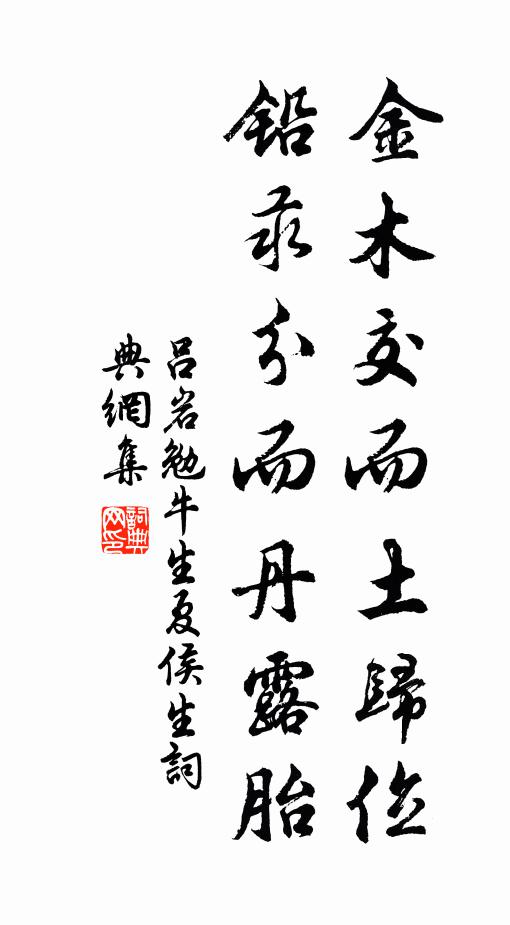 金木交而土歸位
鉛汞分而丹露胎
呂岩勉牛生夏侯生詞
典網集
詞典
网印